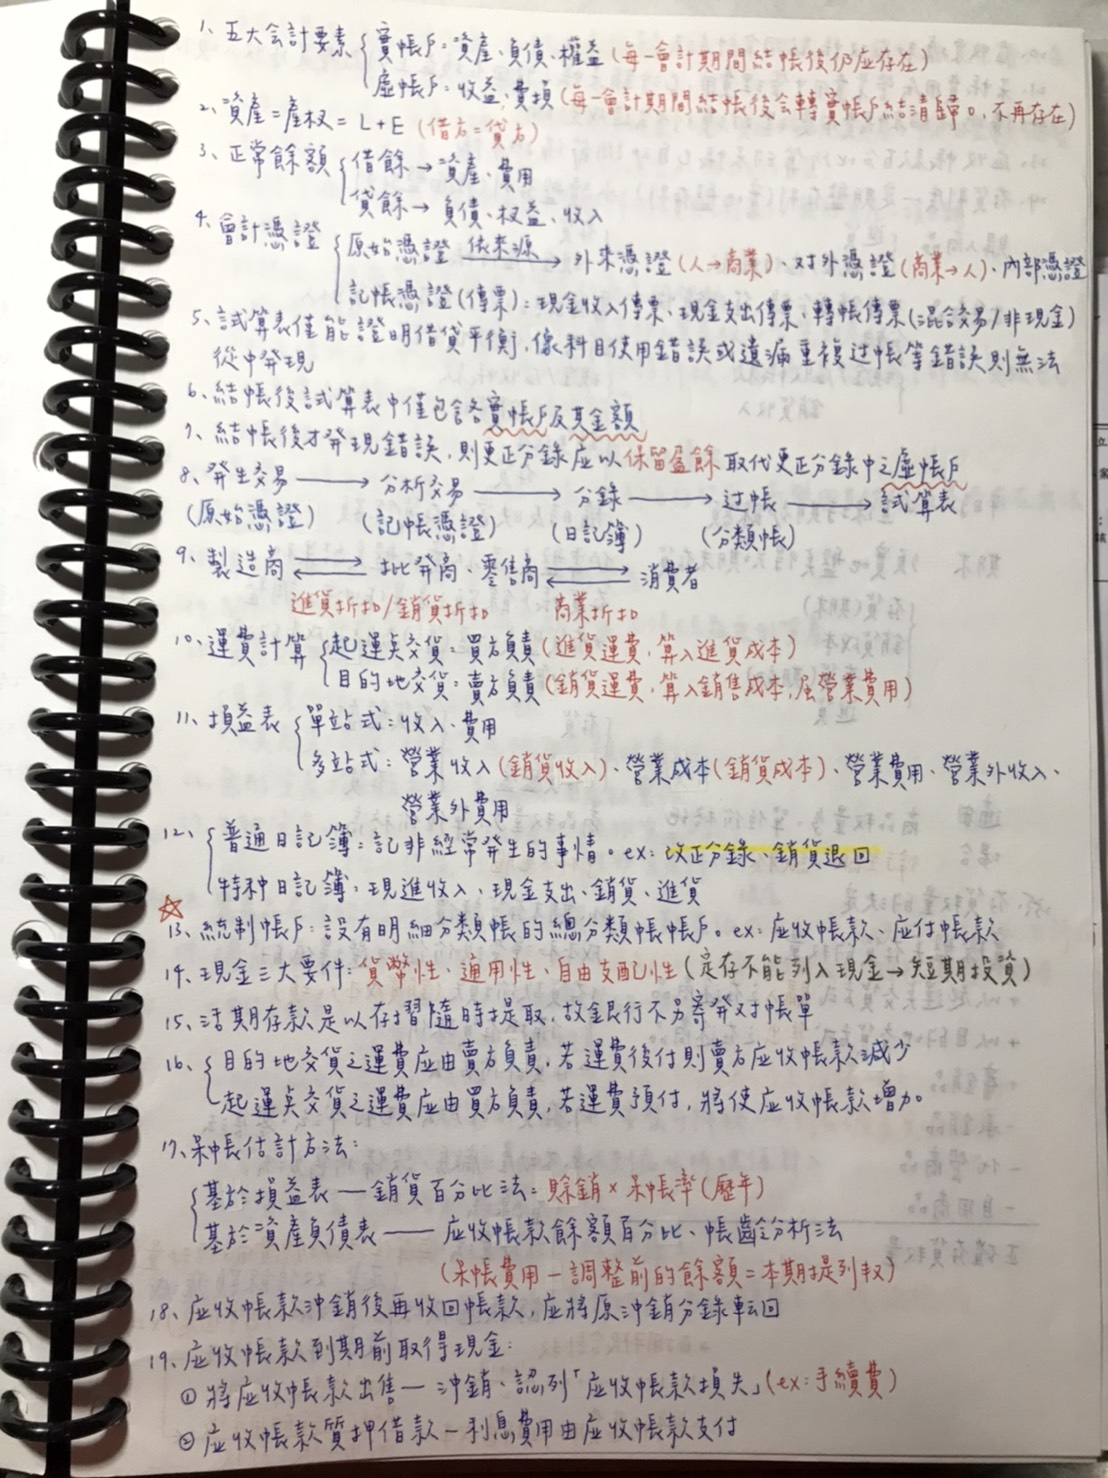 1、五大会計要素{實帳戶:資產、負債、權益(每一會計期間結帳後仍应存在)
虛帳戶:收益、費損(每一會計期間結帳後会轉實帳戶結清歸0,不再存在)
2、資產=產权= L+E (借方=貸方)
3、正常餘額{借餘→資產、費用
貸餘→負債、权益、收入
4、會計憑證{原始憑證 依來源→外來憑證(人→商業)、对外憑證(商業→人)、內部憑證
記帳憑證(傳票):現金收入傳票、現金支出傳票、轉帳傳票(混合交易/非現金)
5、試算表僅能證明借貸平衡,像科目使用錯誤或遺漏重複过帳等錯誤則無法
從中發現
6、結帳後試算表中僅包含各實帳戶及其金額
7、結帳後才發現錯誤,則更正分錄应以保留盈餘取代更正分錄中之虛帳戶
8、發生交易→分析交易→分錄→过帳→試算表
(原始憑證) (記帳憑證) (日記簿) (分類帳)
9、製造商⇄批發商、零售商⇄消費者
進貨折扣/銷貨折扣 商業折扣
10、運費計算{起運點交貨:買方負責(進貨運費,算入進貨成本)
目的地交貨:賣方負責(銷貨運費,算入銷售成本,屬營業費用)
11、損益表{單站式:收入、費用
多站式:營業收入(銷貨收入)、營業成本(銷貨成本)、營業費用、營業外收入、
營業外費用
12、{普通日記簿:記非經常發生的事情。ex:改正分錄、銷貨退回
特种日記簿:現進收入、現金支出、銷貨、進貨
☆
13、統制帳戶:設有明細分類帳的總分類帳帳戶。ex:应收帳款、应付帳款
14、現金三大要件:貨幣性、通用性、自由支配性(定存不能列入現金→短期投資)
15、活期存款是以存摺隨時提取,故銀行不另寄發对帳單
16、{目的地交貨之運費应由賣方負責,若運費後付則賣方应收帳款減少
起運點交貨之運費应由買方負責,若運費預付,將使应收帳款增加。
17、呆帳估計方法:
{基於損益表—銷貨百分比法:賒銷×呆帳率(歷年)
基於資產負債表——应收帳款餘額百分比、帳齡分析法
(呆帳費用-調整前的餘額=本期提列數)
18、应收帳款沖銷後再收回帳款,应將原沖銷分錄転回
19、应收帳款到期前取得現金:
①將应收帳款出售—沖銷、認列「应收帳款損失」(ex:手續費)
②应收帳款質押借款-利息費用由应收帳款支付